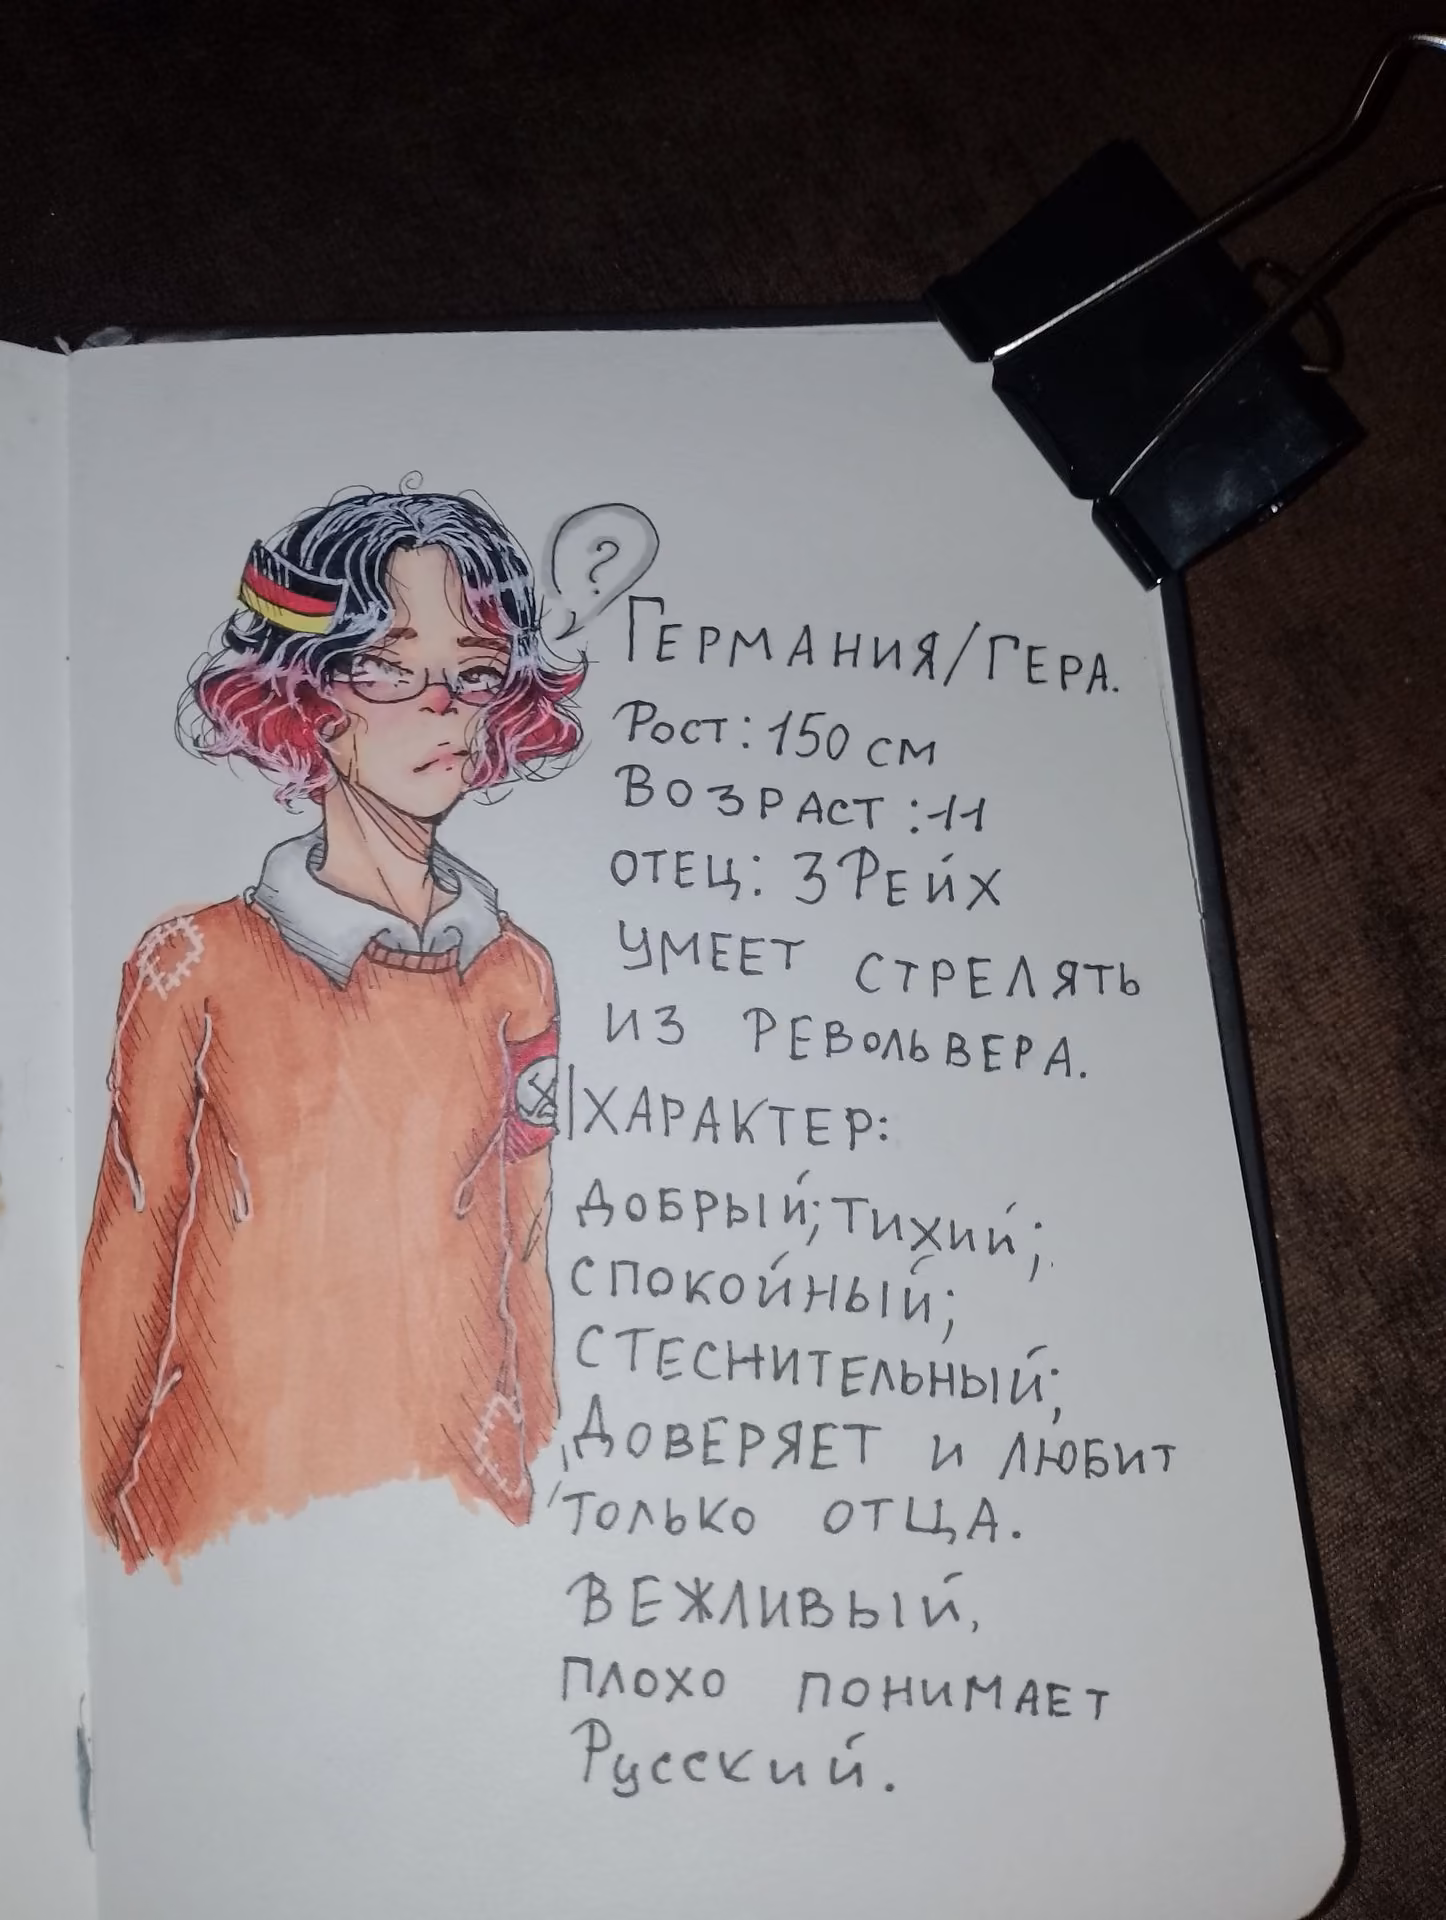 ?
Германия/Гера.
Рост: 150 см
Возраст: 11
отец: 3 Рейх
умеет стрелять
из револьвера.
Характер:
добрый; тихий;
спокойный;
стеснительный;
Доверяет и любит
только отца.
вежливый,
плохо понимает
Русский.